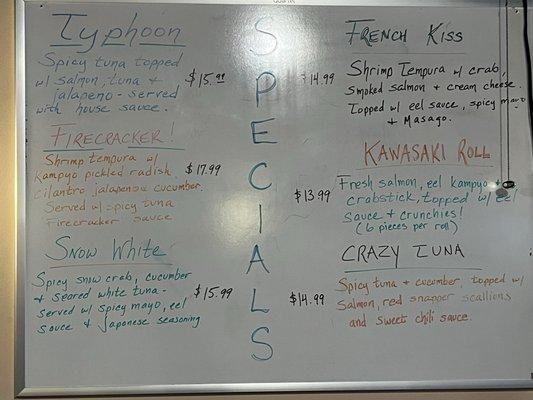 Typhoon
Spicy tuna topped
w/ salmon, tuna +
jalapeno - served
with house sauce.
$15.99
FIRECRACKER!
Shrimp tempura w/
Kampyo pickled radish.
cilantro jalapeno cucumber.
Served w/ spicy tuna
Firecracker sauce
$17.99
SNOW WHITE
Spicy snow crab, cucumber
+ seared white tuna -
Served w/ spicy mayo, eel
sauce + Japanese seasoning
$15.99
SPECIALS
FRENCH KISS
$14.99
Shrimp Tempura w/ crab,
smoked salmon + cream cheese.
Topped w/ eel sauce, spicy mayo
+ Masago.
KAWASAKI ROLL
$13.99
Fresh salmon, eel kampyo +
crabstick, topped w/ eel
sauce + crunchies!
(6 pieces per roll)
CRAZY TUNA
$14.99
Spicy tuna + cucumber, topped w/
Salmon, red snapper scallions
and sweet chili sauce.